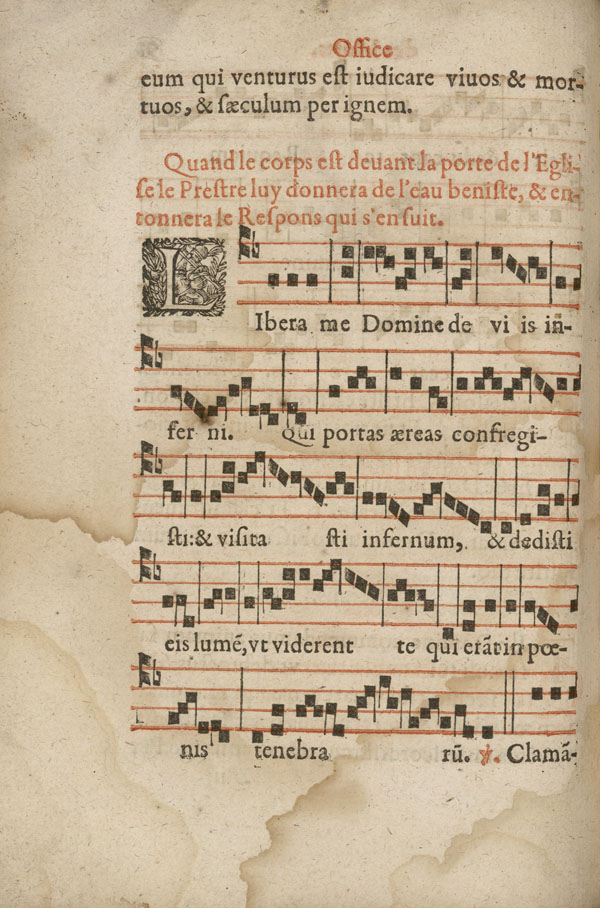 Office
eum qui venturus est iudicare viuos & mor-
tuos, & sæculum per ignem.
Quand le corps est deuant la porte de l'Egli-
se le Prestre luy donnera de l'eau beniste, & en-
tonnera le Respons qui s'ensuit.
LIbera me Domine de vi is in-
fer ni. Qui portas æreas confregi-
sti: & visita sti infernum, & dedisti
eis lumẽ, vt viderent te qui erãt in pœ-
nis tenebra rũ. ℣. Clamã-